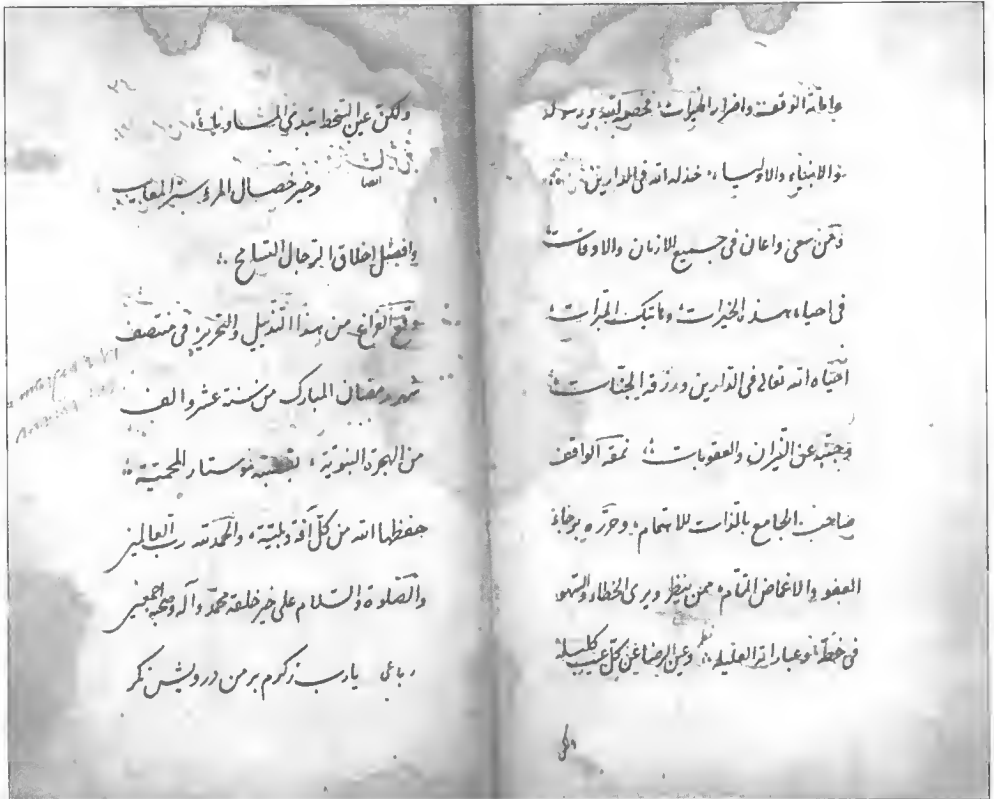 واماتة الوقف واضرار الخيرات؛ فخصمه الله ورسوله
والانبياء والاولياء، خذله الله فى الدارين
ومن سعى واعان فى جميع الازمان والاوقات
فى احياء هذه الخيرات؛ وهاتيك المبرات؛
احياه الله تعالى فى الدارين ورزقه الجنات
وجنبه عن النيران والعقوبات؛ نمقه الواقف
صاحب الجامع بالذات للاهتمام، وحرره برجاء
العفو والاغماض التام، ممن ينظر ويرى الخطاء والسهو
فى خطه وعباراته العليله؛ نظم وعين الرضا عن كل عيب كليلة
ولكن
٢٤
ولكن عين السخط تبدى المساويا
وخير خصال المرء ستر المعايب
وافضل اخلاق الرجال التسامح
وقع الفراغ من هذا التذييل والتحرير فى منتصف
شهر رمضان المبارك من سنة عشر والف
من الهجرة النبوية، بقصبة موستار المحمية؛
حفظها الله من كل آفة وبلية، والحمد لله رب العالمين
والصلوة والسلام على خير خلقه محمد وآله وصحبه اجمعين
رباعى يارب زكرم بر من درويش نكر